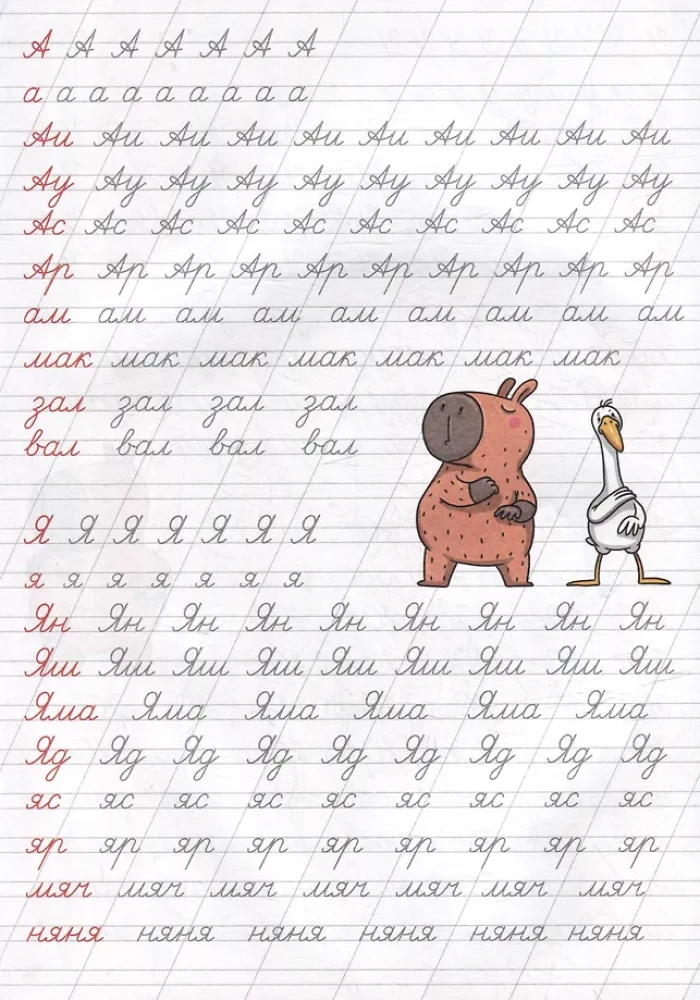 А А А А А А А
а а а а а а а а а
Аи Аи Аи Аи Аи Аи Аи Аи Аи Аи
Ау Ау Ау Ау Ау Ау Ау Ау Ау Ау
Ас Ас Ас Ас Ас Ас Ас Ас Ас Ас
Ар Ар Ар Ар Ар Ар Ар Ар Ар Ар
ам ам ам ам ам ам ам ам ам
мак мак мак мак мак мак мак
зал зал зал зал
вал вал вал вал
Я Я Я Я Я Я Я
я я я я я я я
Ян Ян Ян Ян Ян Ян Ян Ян Ян
Яш Яш Яш Яш Яш Яш Яш Яш Яш
Яма Яма Яма Яма Яма Яма
Яд Яд Яд Яд Яд Яд Яд Яд Яд
яс яс яс яс яс яс яс яс яс
яр яр яр яр яр яр яр яр яр
мяч мяч мяч мяч мяч мяч мяч
няня няня няня няня няня няня